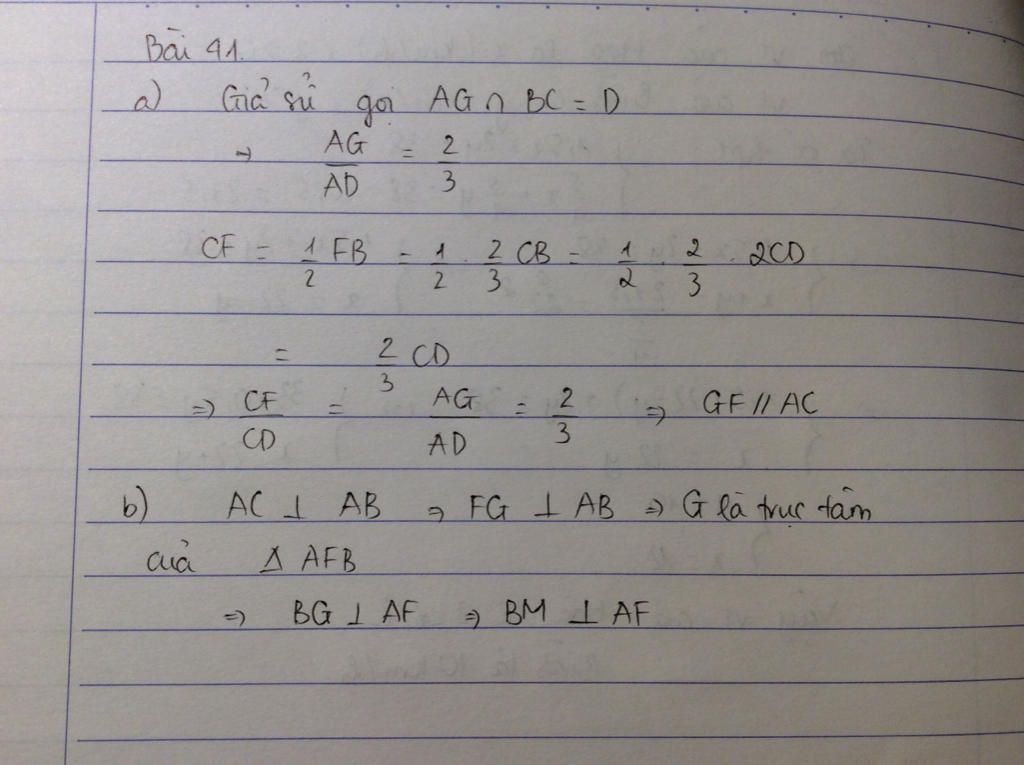 Bài 41.
a) Giả sử gọi AG ∩ BC = D
→ AG/AD = 2/3
CF = 1/2 FB = 1/2 . 2/3 CB = 1/2 . 2/3 . 2CD
= 2/3 CD
⇒ CF/CD = AG/AD = 2/3 ⇒ GF // AC
b) AC ⊥ AB ⇒ FG ⊥ AB ⇒ G là trực tâm
của Δ AFB
⇒ BG ⊥ AF ⇒ BM ⊥ AF